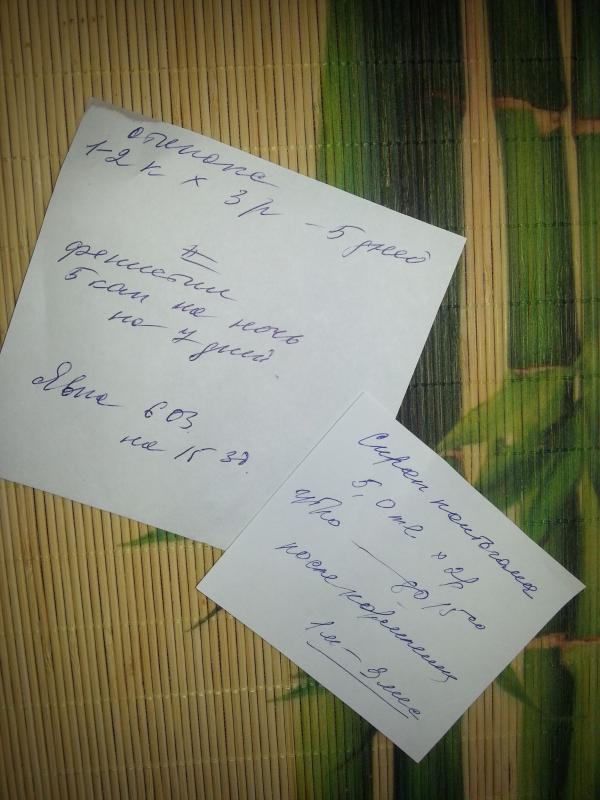 отипакс
1-2 к х 3 р - 5 дней
фенистил
5 кап на ночь
на 7 дней
Явка 6 03
на 15 30
Сироп пантогама
5,0 мл х 2р
утро — до 15 00
после кормления
1 м - 3 мес